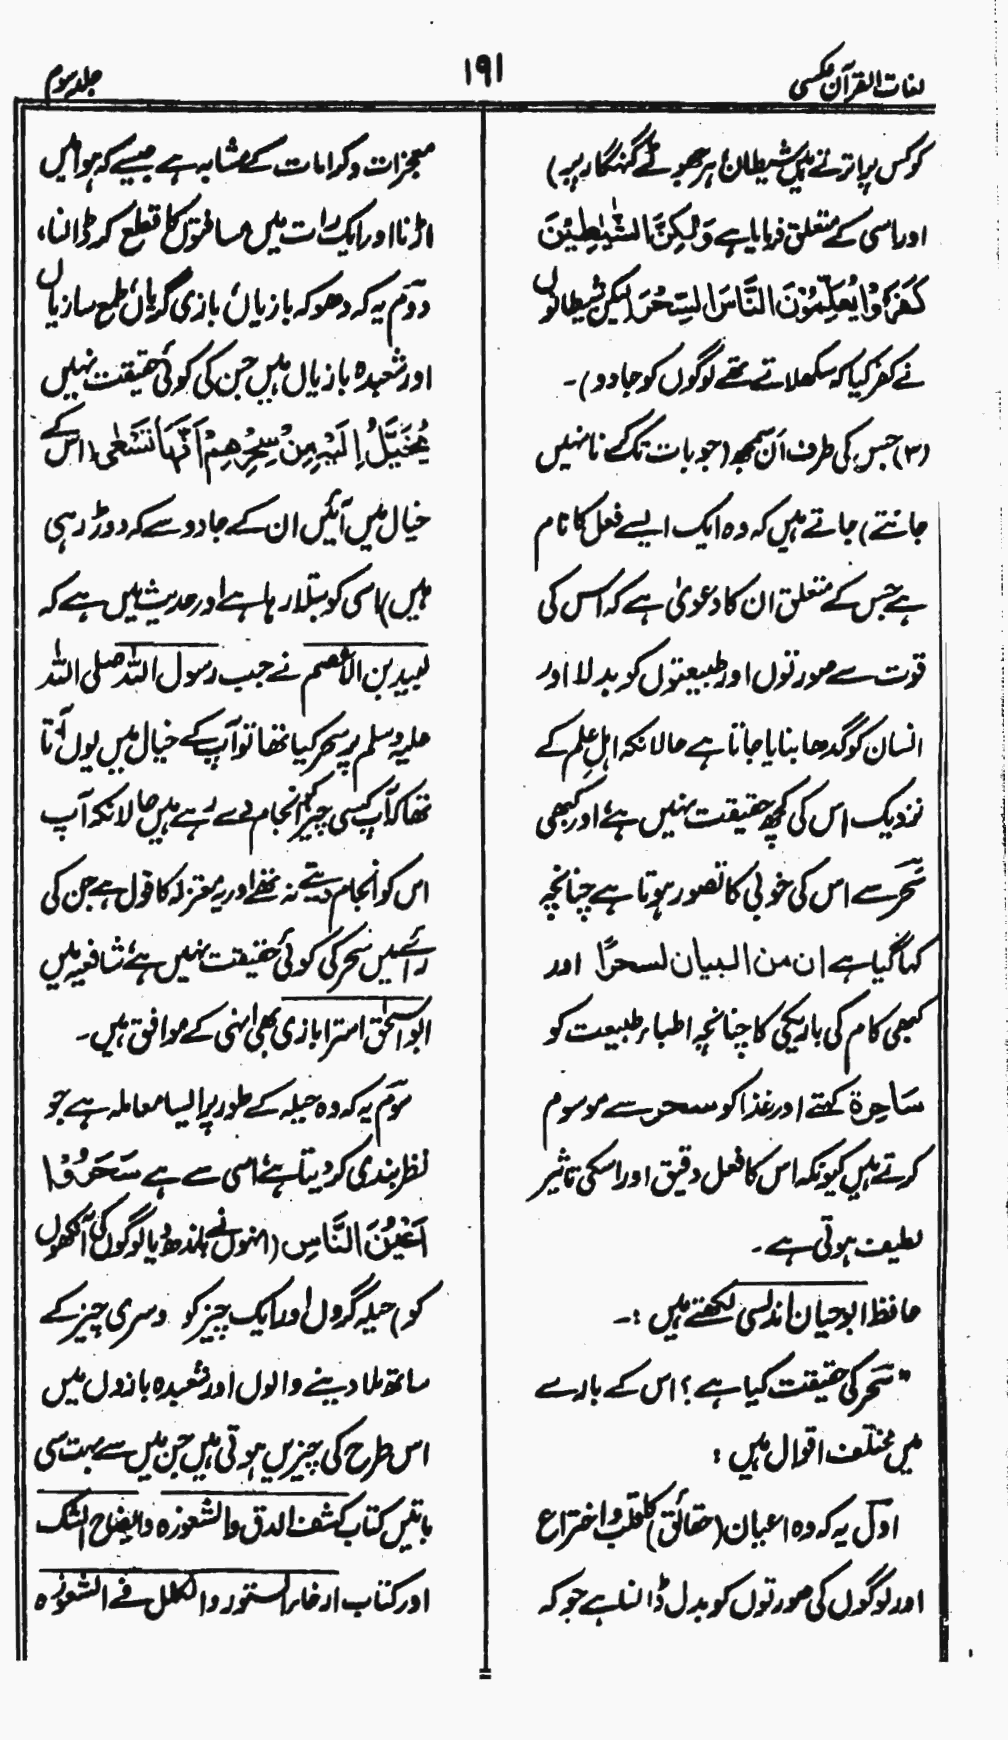 لغات القرآن عکسی
۱۹۱
جلد سوم
کو کس پر اترتے ہیں شیطان، ہر جھوٹے گنہگار پر)
اور اسی کے متعلق فرمایا ہے وَلٰکِنَّ الشَّیٰطِیْنَ
کَفَرُوْا یُعَلِّمُوْنَ النَّاسَ السِّحْرَ (لیکن شیطانوں
نے کفر کیا کہ سکھلاتے تھے لوگوں کو جادو)۔
(۳) جس کی طرف اَن سمجھ (جو بات تک کرنا نہیں
جانتے) جاتے ہیں کہ وہ ایک ایسے فعل کا نام
ہے جس کے متعلق ان کا دعویٰ ہے کہ اس کی
قوت سے صورتوں اور طبیعتوں کو بدلا اور
انسان کو گدھا بنایا جاتا ہے حالانکہ اہلِ علم کے
نزدیک اس کی کچھ حقیقت نہیں ہے، اور کبھی
سحر سے اس کی خوبی کا تصور ہوتا ہے چنانچہ
کہا گیا ہے ان من البیان لسحرًا اور
کبھی کام کی باریکی کا چنانچہ اطباء طبیعت کو
سَاحِرَة کہتے اور غذا کو سحر سے موسوم
کرتے ہیں کیونکہ اس کا فعل دقیق اور اسکی تاثیر
لطیف ہوتی ہے۔
حافظ ابو حیان اندلسی لکھتے ہیں :۔
"سحر کی حقیقت کیا ہے؟ اس کے بارے
میں مختلف اقوال ہیں :
اول یہ کہ وہ اعیان (حقائق) کا قلب و اختراع
اور لوگوں کی صورتوں کو بدل ڈالنا ہے جو کہ
معجزات و کرامات کے مشابہ ہے جیسے کہ ہوا میں
اڑنا اور ایک رات میں مسافتوں کا قطع کر ڈالنا،
دوم یہ کہ دھوکہ بازیاں، بازی گریاں، ملمع سازیاں
اور شعبدہ بازیاں ہیں جن کی کوئی حقیقت نہیں
یُخَیَّلُ اِلَیْہِ مِنْ سِحْرِھِمْ اَنَّہَا تَسْعٰی (اس کے
خیال میں آئیں ان کے جادو سے کہ دوڑ رہی
ہیں) اسی کو بتلا رہا ہے اور حدیث میں ہے کہ
لبید بن الاعصم نے جب رسول اللہ صلی اللہ
علیہ وسلم پر سحر کیا تھا تو آپ کے خیال میں یوں آتا
تھا کہ آپ کسی چیز کو انجام دے رہے ہیں حالانکہ آپ
اس کو انجام دیتے نہ تھے اور یہ معتزلہ کا قول ہے جن کی
رائے میں سحر کی کوئی حقیقت نہیں ہے، شافعیہ میں
ابو اسحٰق استرابازی بھی انہی کے موافق ہیں۔
سوم یہ کہ وہ حیلہ کے طور پر ایسا معاملہ ہے جو
نظر بندی کر دیتا ہے، اسی سے ہے سَحَرُوْٓا
اَعْیُنَ النَّاسِ (انہوں نے باندھ دیا لوگوں کی آنکھوں
کو) حیلہ گروں اور ایک چیز کو دوسری چیز کے
ساتھ ملا دینے والوں اور شعبدہ بازوں میں
اس طرح کی چیزیں ہوتی ہیں جن میں سے بہت سی
باتیں کتاب کشف الدق والشعوذہ و ایضاح الشک
اور کتاب ارخاء الستور والکلل فے الشعوذہ